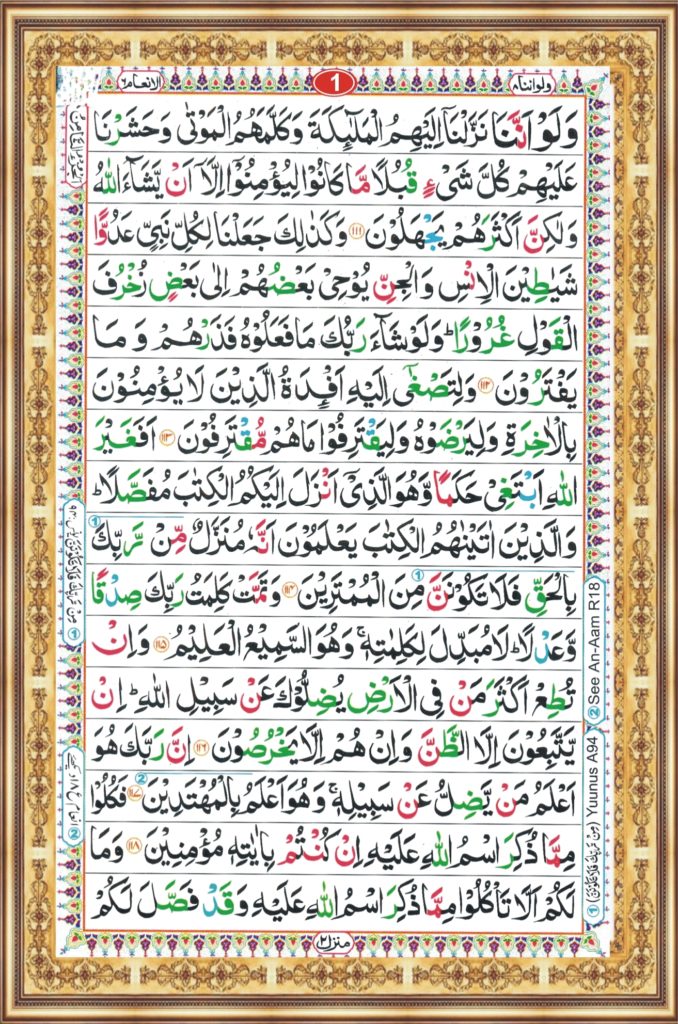 ولواننا ٨
1
الانعام ٦
وَلَوْ اَنَّنَا نَزَّلْنَاۤ اِلَیْهِمُ الْمَلٰٓئِكَةَ وَكَلَّمَهُمُ الْمَوْتٰی وَحَشَرْنَا
عَلَیْهِمْ كُلَّ شَیْءٍ قُبُلًا مَّا كَانُوْا لِیُؤْمِنُوْۤا اِلَّاۤ اَنْ یَّشَآءَ اللّٰهُ
وَلٰكِنَّ اَكْثَرَهُمْ یَجْهَلُوْنَ ۝۱۱۱ وَكَذٰلِكَ جَعَلْنَا لِكُلِّ نَبِیٍّ عَدُوًّا
شَیٰطِیْنَ الْاِنْسِ وَالْجِنِّ یُوْحِیْ بَعْضُهُمْ اِلٰی بَعْضٍ زُخْرُفَ
الْقَوْلِ غُرُوْرًا ؕ وَلَوْ شَآءَ رَبُّكَ مَا فَعَلُوْهُ فَذَرْهُمْ وَمَا
یَفْتَرُوْنَ ۝۱۱۲ وَلِتَصْغٰۤی اِلَیْهِ اَفْـِٕدَةُ الَّذِیْنَ لَا یُؤْمِنُوْنَ
بِالْاٰخِرَةِ وَلِیَرْضَوْهُ وَلِیَقْتَرِفُوْا مَا هُمْ مُّقْتَرِفُوْنَ ۝۱۱۳ اَفَغَیْرَ
اللّٰهِ اَبْتَغِیْ حَكَمًا وَّهُوَ الَّذِیْۤ اَنْزَلَ اِلَیْكُمُ الْكِتٰبَ مُفَصَّلًا ؕ
وَالَّذِیْنَ اٰتَیْنٰهُمُ الْكِتٰبَ یَعْلَمُوْنَ اَنَّهٗ مُنَزَّلٌ مِّنْ رَّبِّكَ
بِالْحَقِّ فَلَا تَكُوْنَنَّ مِنَ الْمُمْتَرِیْنَ ۝۱۱۴ وَتَمَّتْ كَلِمَتُ رَبِّكَ صِدْقًا
وَّعَدْلًا ؕ لَا مُبَدِّلَ لِكَلِمٰتِهٖ ۚ وَهُوَ السَّمِیْعُ الْعَلِیْمُ ۝۱۱۵ وَاِنْ
تُطِعْ اَكْثَرَ مَنْ فِی الْاَرْضِ یُضِلُّوْكَ عَنْ سَبِیْلِ اللّٰهِ ؕ اِنْ
یَّتَّبِعُوْنَ اِلَّا الظَّنَّ وَاِنْ هُمْ اِلَّا یَخْرُصُوْنَ ۝۱۱۶ اِنَّ رَبَّكَ هُوَ
اَعْلَمُ مَنْ یَّضِلُّ عَنْ سَبِیْلِهٖ ۚ وَهُوَ اَعْلَمُ بِالْمُهْتَدِیْنَ ۝۱۱۷ فَكُلُوْا
مِمَّا ذُكِرَ اسْمُ اللّٰهِ عَلَیْهِ اِنْ كُنْتُمْ بِاٰیٰتِهٖ مُؤْمِنِیْنَ ۝۱۱۸ وَمَا
لَكُمْ اَلَّا تَاْكُلُوْا مِمَّا ذُكِرَ اسْمُ اللّٰهِ عَلَیْهِ وَقَدْ فَصَّلَ لَكُمْ
منزل ٢
② See An-Aam R18
① Yuunus A94